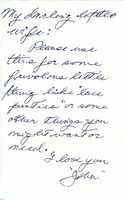 My darling little
wife:
Please use
this for some
frivolous little
thing like "lace
panties" or some
other things you
might want or
need.
"I love you
"John"